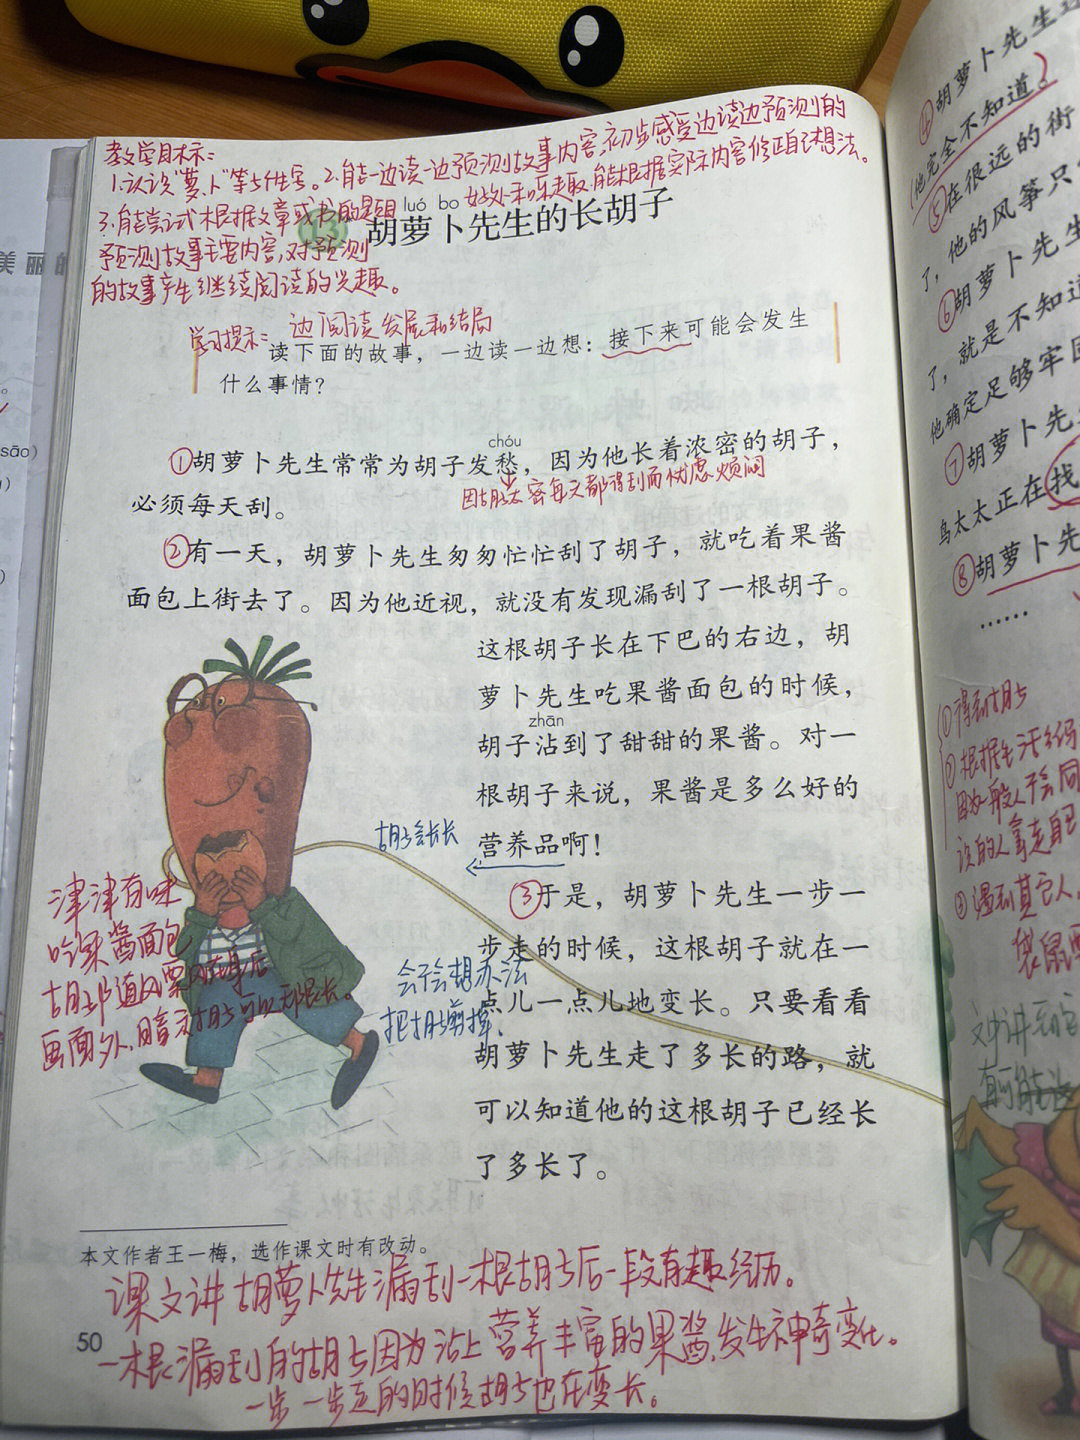 教学目标:
1.认识"萝、卜"等5个生字。2.能一边读一边预测故事内容,初步感受边读边预测的
好处和乐趣,能根据实际内容修正自己想法。
3.能尝试根据文章或书的题目
预测故事主要内容,对预测
的故事产生继续阅读的兴趣。
luó bo
13 胡萝卜先生的长胡子
学习提示: 边阅读 发展和结局
读下面的故事，一边读一边想：接下来可能会发生
什么事情？
chóu
①胡萝卜先生常常为胡子发愁，因为他长着浓密的胡子，
必须每天刮。
因胡子太密每天都得刮而忧虑烦闷
②有一天，胡萝卜先生匆匆忙忙刮了胡子，就吃着果酱
面包上街去了。因为他近视，就没有发现漏刮了一根胡子。
这根胡子长在下巴的右边，胡
萝卜先生吃果酱面包的时候，
zhān
胡子沾到了甜甜的果酱。对一
根胡子来说，果酱是多么好的
营养品啊！
胡子会长长
③于是，胡萝卜先生一步一
步走的时候，这根胡子就在一
点儿一点儿地变长。只要看看
胡萝卜先生走了多长的路，就
可以知道他的这根胡子已经长
了多长了。
会不会想办法
把胡子剪掉
津津有味
吃果酱面包
胡子
画面外,暗示胡子可以无限长。
本文作者王一梅，选作课文时有改动。
课文讲胡萝卜先生漏刮一根胡子后一段有趣经历。
50
一根漏刮的胡子因为沾上营养丰富的果酱,发生神奇变化。
一步一步走的时候胡子也在变长。
美丽的
sāo)
胡萝卜先生
④胡萝卜先生
(他完全不知道。
⑤在很远的街
了，他的风筝只
⑥胡萝卜先生
了，就是不知道
他确定足够牢固
⑦胡萝卜先
鸟太太正在找
⑧胡萝卜先
……
①得到胡子
②根据生活经验
因为一般人不会同
识的人拿走自己
③遇到其它人
袋鼠